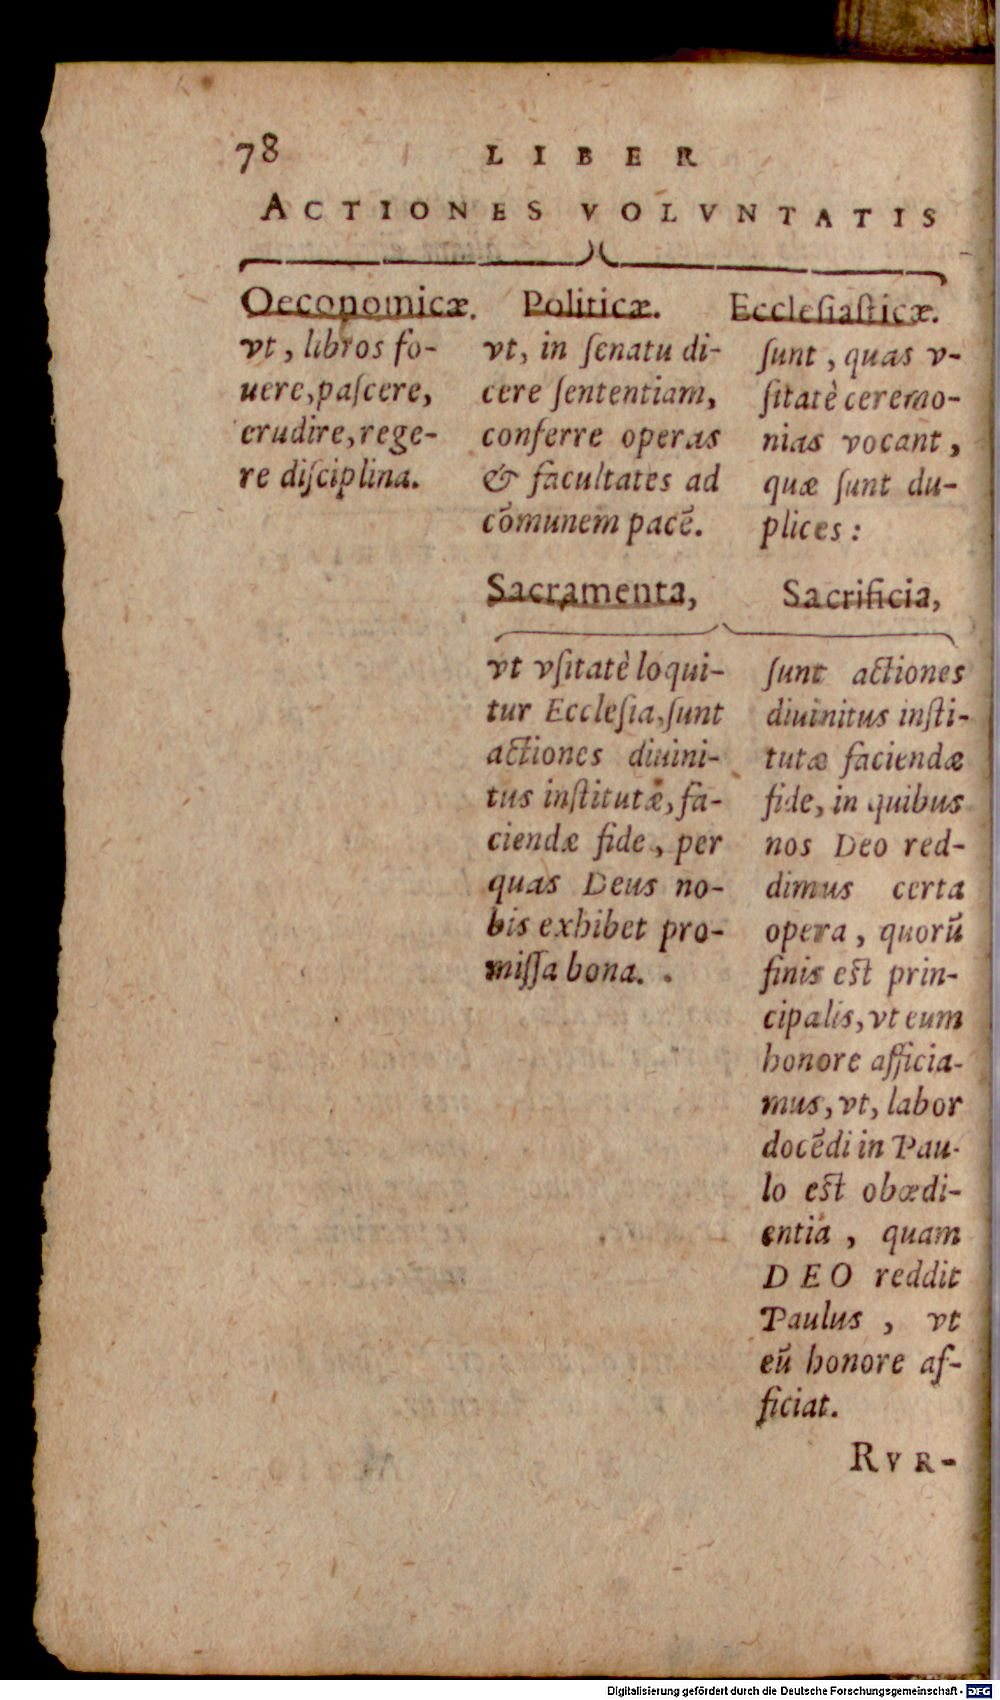 78 LIBER
ACTIONES VOLVNTATIS
Oeconomicæ.
vt, libros fo-
uere, paſcere,
erudire, rege-
re diſciplina.
Politicæ.
vt, in ſenatu di-
cere ſententiam,
conferre operas
& facultates ad
cōmunem pacē.
Eccleſiaſticæ.
ſunt, quas v-
ſitatè ceremo-
nias vocant,
quæ ſunt du-
plices:
Sacramenta,
vt vſitatè loqui-
tur Eccleſia, ſunt
actiones diuini-
tus inſtitutæ, fa-
ciendæ fide, per
quas Deus no-
bis exhibet pro-
miſſa bona.
Sacrificia,
ſunt actiones
diuinitus inſti-
tutæ faciendæ
fide, in quibus
nos Deo red-
dimus certa
opera, quorū
finis eſt prin-
cipalis, vt eum
honore afficia-
mus, vt, labor
docēdi in Pau-
lo eſt obœdi-
entia, quam
DEO reddit
Paulus, vt
eū honore af-
ficiat.
RVR-
Digitalisierung gefördert durch die Deutsche Forschungsgemeinschaft - DFG